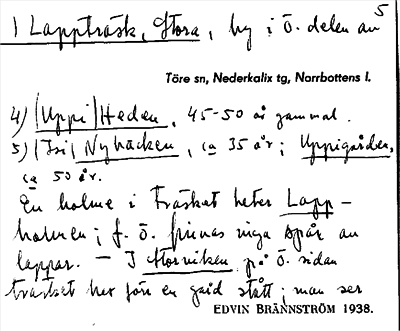 1 Lappträsk, Stora, by i Ö. delen av 5
Töre sn, Nederkalix tg, Norrbottens l.
4) (Uppi) Heden, 45-50 år gammal.
5) (Isi) Nybäcken, ca 35 år; Uppigården,
ca 50 år.
En holme i träsket heter Lapp-
holmen; f. ö. finnas inga spår av
lappar. – I Storviken på Ö. sidan
träsket har förr en gård stått; man ser
EDVIN BRÄNNSTRÖM 1938.